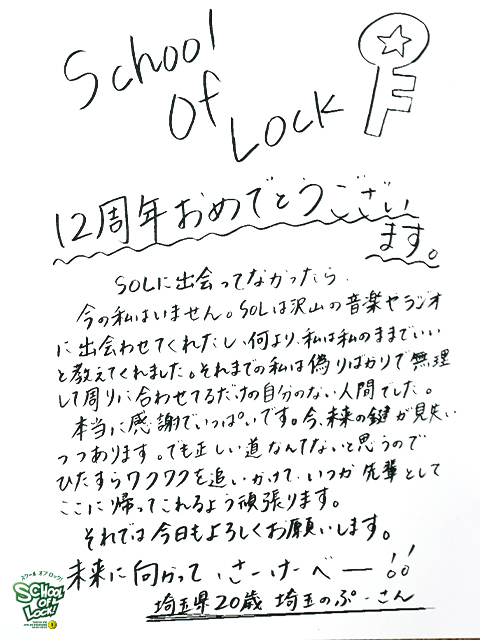 School
of
Lock
12周年おめでとうござい
ます。
SOLに出会ってなかったら、
今の私はいません。SOLは沢山の音楽やラジオ
に出会わせてくれたし、何より、私は私のままでいい
と教えてくれました。それまでの私は偽りばかりで無理
して周りに合わせてるだけの自分のない人間でした。
本当に感謝でいっぱいです。今、未来の鍵が見失い
つつあります。でも正しい道なんてないと思うので
ひたすらワクワクを追いかけて、いつか先輩として
ここに帰ってこれるよう頑張ります。
それでは今日もよろしくお願いします。
未来に向かって、さーけーべー!!
埼玉県20歳 埼玉のぷーさん
スクール オブ ロック!
SCHOOL
OF
LOCK!